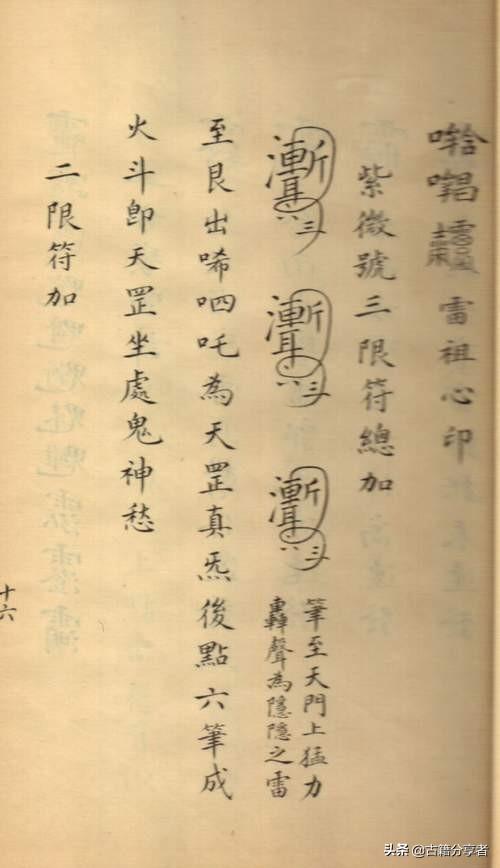 雷祖心印
紫微號三限符總加
筆至天門上猛力
轟聲為隱隱之雷
至艮出唏呬吒為天罡真炁後點六筆成
火斗即天罡坐處鬼神愁
二限符加
十六
头条 @古籍分享者